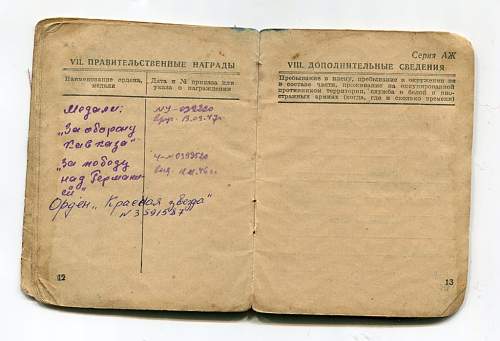 VII. ПРАВИТЕЛЬСТВЕННЫЕ НАГРАДЫ
Наименование ордена, медали
Дата и № приказа или указа о награждении
Медали:
„За оборону
Кавказа"
„За победу
над Германи-
ей"
Орден „Красная звезда"
N 3591587
12
Серия АЖ
VIII. ДОПОЛНИТЕЛЬНЫЕ СВЕДЕНИЯ
Пребывание в плену, пребывание в окружении не
в составе части, проживание на оккупированной
противником территории, служба в белой и ино-
странных армиях (когда, где и сколько времени)
13